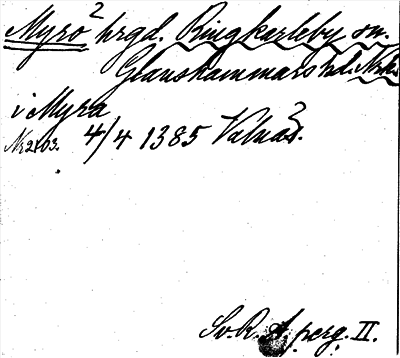 Myrö 2 hrgd. Ringkarleby sn.
Glanshammars hd. Nrke.
i Myra
Nr 2103. 4/4 1385 Valnäs.
Sv. R. A. perg. II.